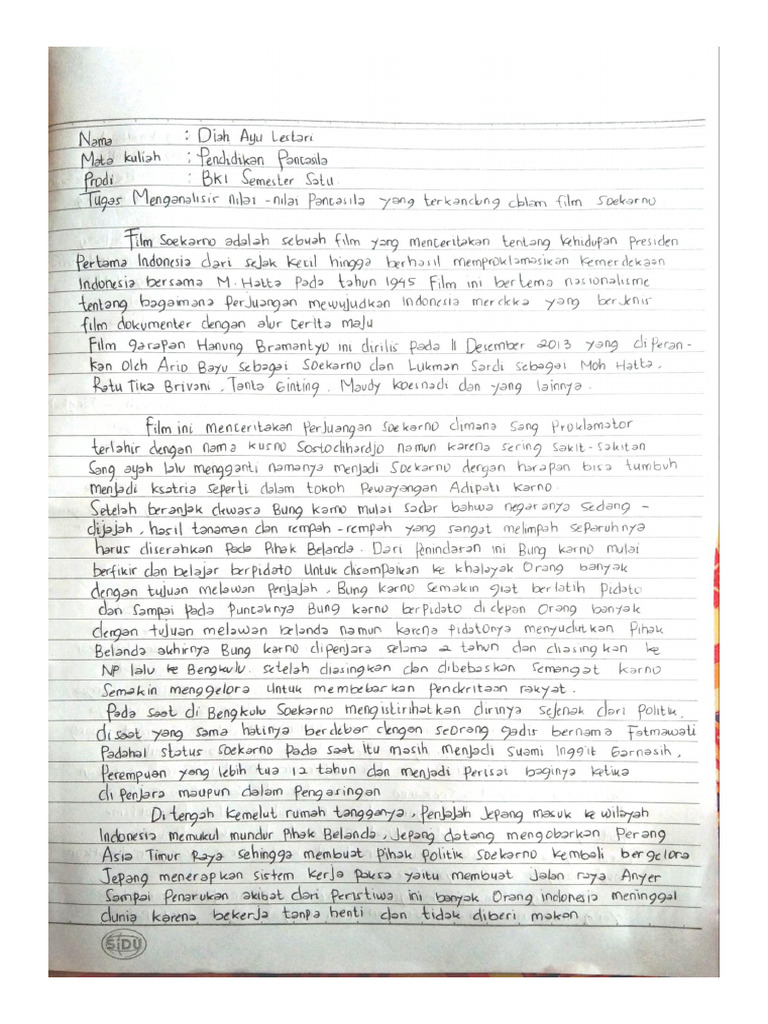 Nama : Diah Ayu Lestari
Mata kuliah : Pendidikan Pancasila
Prodi : BKI Semester Satu
Tugas Menganalisis nilai-nilai Pancasila yang terkandung dalam film Soekarno
Film Soekarno adalah sebuah film yang menceritakan tentang kehidupan Presiden
Pertama Indonesia dari sejak kecil hingga berhasil memproklamasikan kemerdekaan
Indonesia bersama M. Hatta pada tahun 1945 Film ini bertema nasionalisme
tentang bagaimana Perjuangan mewujudkan Indonesia merdeka yang berjenis
film dokumenter dengan alur cerita maju
Film garapan Hanung Bramantyo ini dirilis pada 11 Desember 2013 yang diperan-
kan Oleh Ario Bayu sebagai Soekarno dan Lukman Sardi sebagai Moh Hatta,
Ratu Tika Bravani, Tanta Ginting, Maudy Koesnadi dan yang lainnya.
Film ini menceritakan Perjuangan Soekarno dimana Sang Proklamator
terlahir dengan nama kusno Sostochhardjo namun karena sering sakit-sakitan
Sang ayah lalu mengganti namanya menjadi Soekarno dengan harapan bisa tumbuh
menjadi ksatria seperti dalam tokoh Pewayangan Adipati Karno.
Setelah beranjak dewasa Bung Karno mulai sadar bahwa negaranya sedang -
dijajah, hasil tanaman dan rempah-rempah yang sangat melimpah separuhnya
harus diserahkan pada Pihak Belanda. Dari Penindaran ini Bung karno mulai
berfikir dan belajar berpidato Untuk disampaikan ke khalayak Orang banyak
dengan tujuan melawan Penjajah, Bung karno semakin giat berlatih Pidato
dan Sampai pada Puncaknya Bung karno berpidato di depan Orang banyak
dengan tujuan melawan belanda namun karena Pidatonya menyudutkan Pihak
Belanda akhirnya Bung karno dipenjara selama 2 tahun dan diasingkan ke
NP lalu ke Bengkulu. setelah diasingkan dan dibebaskan Semangat Karno
Semakin menggelora Untuk membebarkan Penderitaan rakyat.
Pada saat di Bengkulu Soekarno mengistirihatkan dirinya sejenak dari Politik.
disaat yang sama hatinya berdebar dengan seorang gadis bernama Fatmawati
Padahal status Soekarno Pada saat itu masih menjadi Suami Inggit Garnasih,
Perempuan yang lebih tua 12 tahun dan menjadi perisai baginya ketika
di Penjara maupun dalam Pengasingan
Di tengah kemelut rumah tangganya, Penjajah Jepang masuk ke wilayah
Indonesia memukul mundur Pihak Belanda, Jepang datang mengobarkan Perang
Asia Timur Raya sehingga membuat Pihak Politik Soekarno kembali bergelora
Jepang menerapkan sistem kerja Paksa yaitu membuat jalan raya Anyer
Sampai Panarukan akibat dari Peristiwa ini banyak Orang indonesia meninggal
dunia karena bekerja tanpa henti dan tidak diberi makan.
SiDU